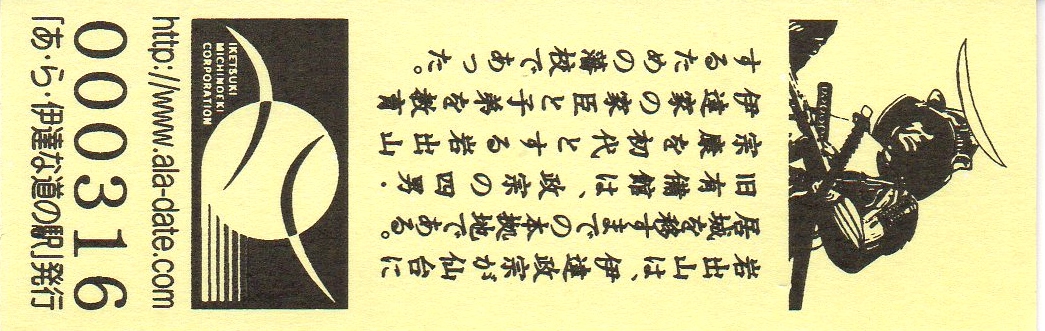 岩出山は、伊達政宗が仙台に
居城を移すまでの本拠地である。
旧有備館は、政宗の四男・
宗康を初代とする岩出山
伊達家の家臣と子弟を教育
するための藩校であった。
IKETSUKI
MICHINOEKI
CORPORATION
http://www.ala-date.com
000316
「あ・ら・伊達な道の駅」発行